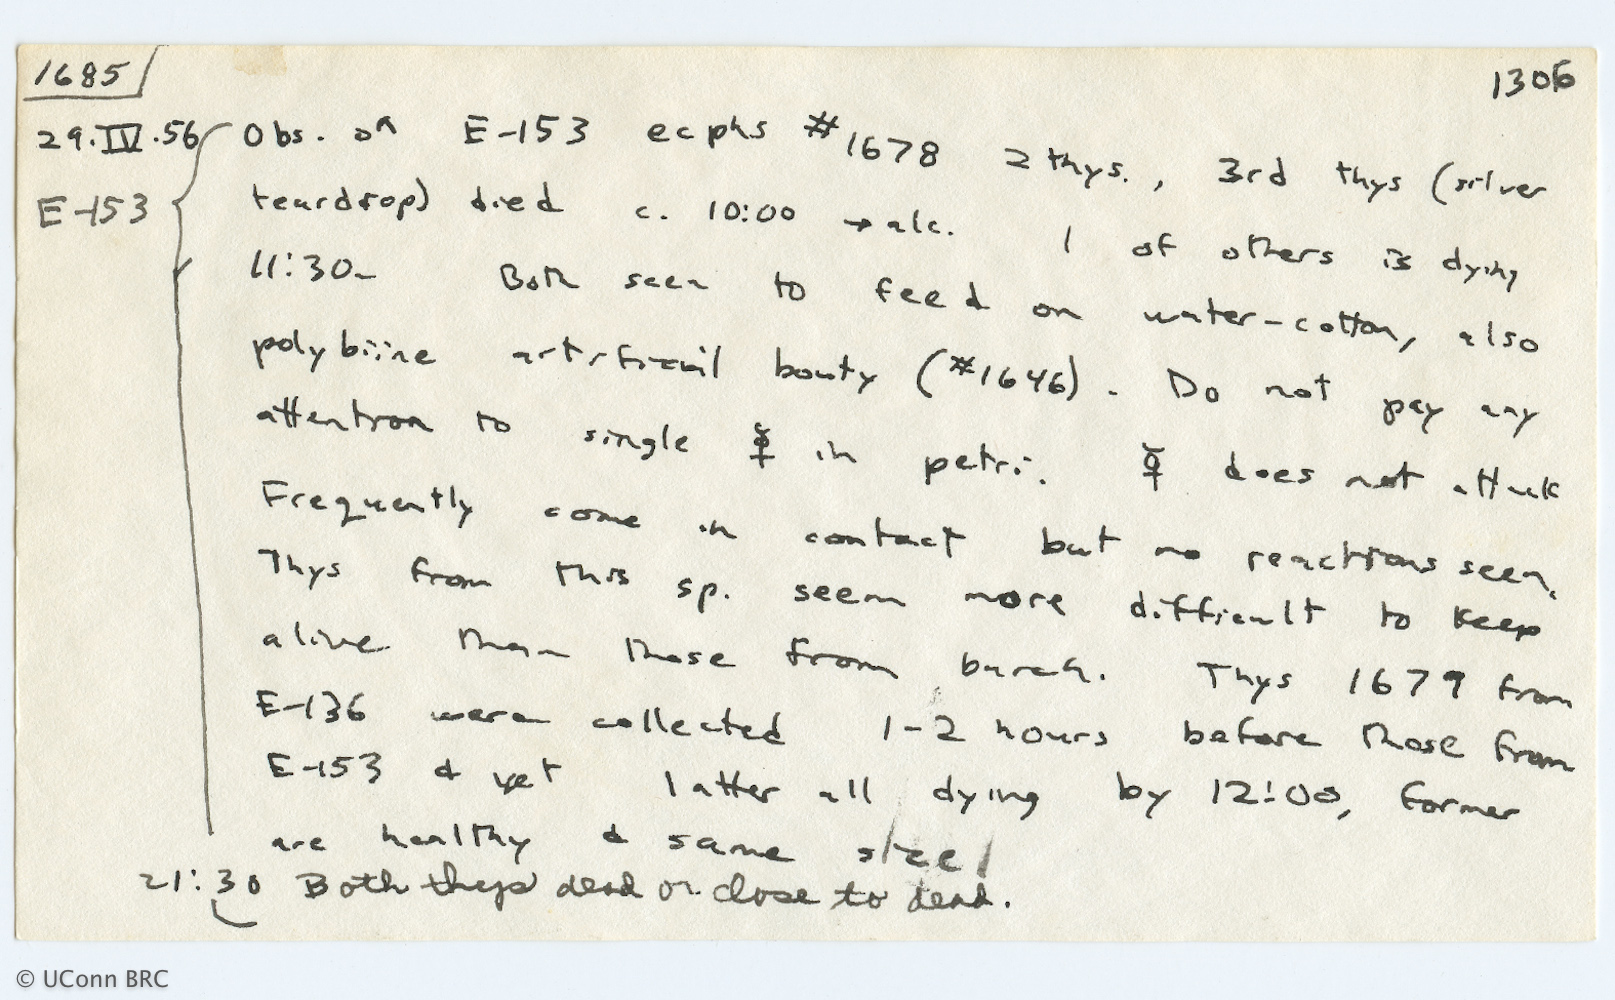 1685 1306
29.IV.56 Obs. on E-153 ecphs #1678 2 thys., 3rd thys (silver
E-153 teardrop) died c. 10:00 → alc. 1 of others is dying
11:30- Both seen to feed on water-cotton, also
polybiine artificial booty (#1646). Do not pay any
attention to single ☿ in petri. ☿ does not attack
Frequently come in contact but no reactions seen.
Thys from this sp. seem more difficult to keep
alive than those from burch. Thys 1679 from
E-136 were collected 1-2 hours before those from
E-153 & yet latter all dying by 12:00, former
are healthy & same size!
21:30 Both thys dead or close to dead.
© UConn BRC